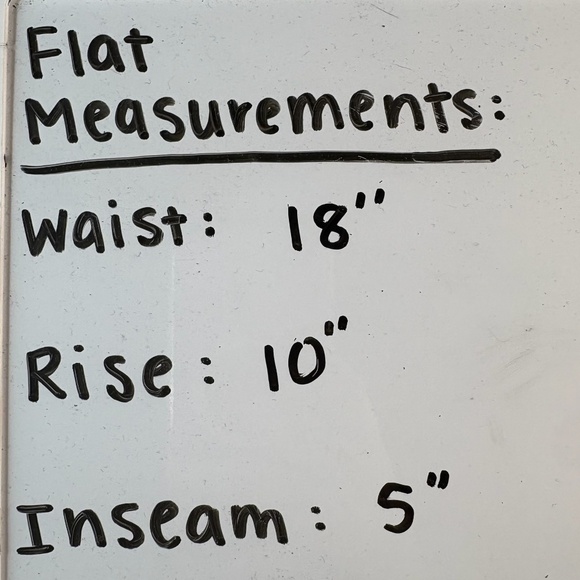 Flat
Measurements:
Waist: 18"
Rise: 10"
Inseam: 5"